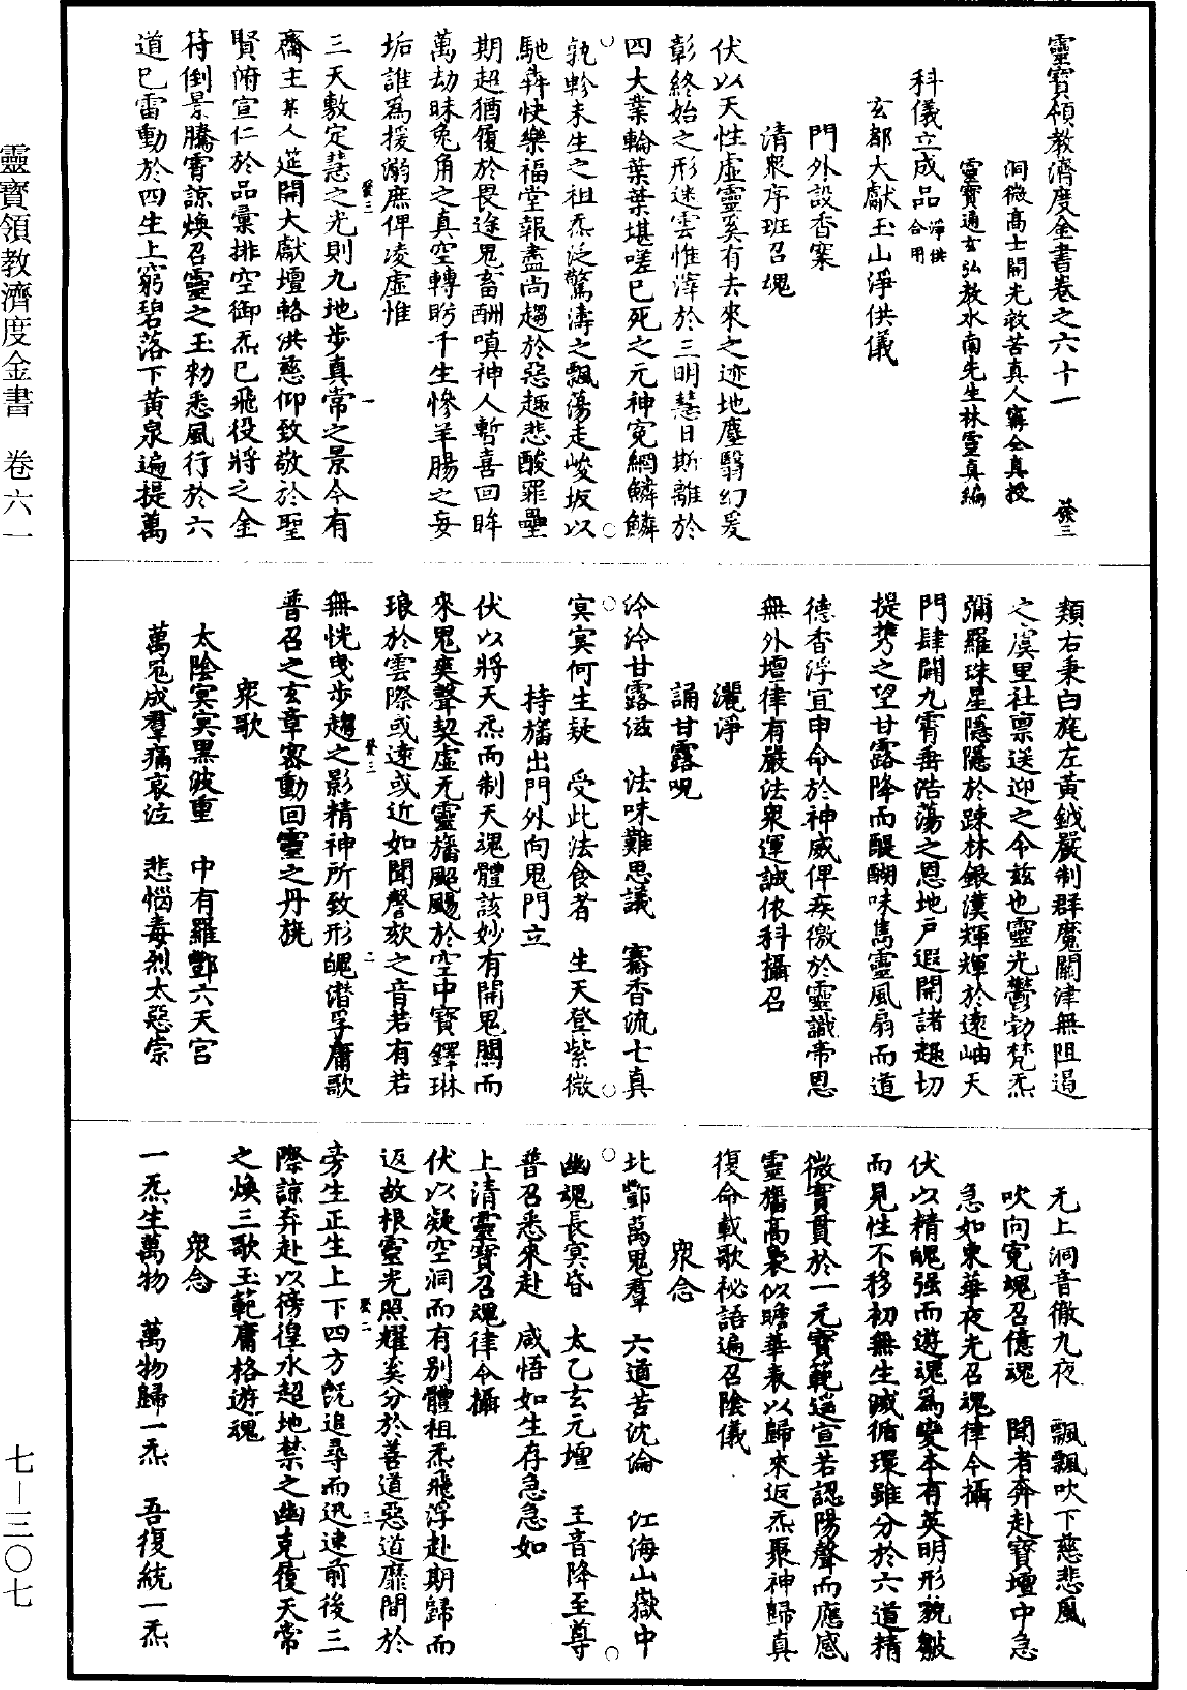 靈寶領教濟度金書卷之六十一 癸三
洞微高士開光救苦真人甯全真授
靈寶通玄弘教水南先生林靈真編
科儀立成品 淨供合用
玄都大獻玉山淨供儀
門外設香案
清衆序班召魂
伏以天性虛靈奚有去來之迹地塵翳幻爰
彰終始之形迷雲惟滓於三明慧日斯離於
四大業輪葉葉堪嗟已死之元神寃網鱗鱗
孰軫未生之祖炁泛驚濤之飄蕩走峻坂以
馳犇快樂福堂報盡尚趨於惡趣悲酸罪壘
期超猶履於畏途鬼畜酬嗔神人暫喜回眸
萬劫昧兔角之真空轉盻千生慘羊腸之妄
垢誰爲援溺庶俾凌虛惟
三天敷定慧之光則九地步真常之景今有
齋主某人筵開大獻壇輅洪慈仰致敬於聖
賢俯宣仁於品彙排空御炁已飛役將之金
符倒景騰霄諒煥召靈之玉札悉風行於六
道已雷動於四生上窮碧落下黃泉遍提萬
類右秉白旄左黃鉞嚴制群魔關津無阻遏
之虞里社禀送迎之令兹也靈光鬱勃梵炁
彌羅珠星隱隱於疎林銀漢輝輝於遠岫天
門肆闢九霄垂浩蕩之恩地戶遐開諸趣切
提携之望甘露降而醍醐味雋靈風扇而道
德香浮宜申命於神威俾疾徼於靈識帝恩
無外壇律有嚴法衆運誠依科攝召
灑淨
誦甘露呪
泠泠甘露滋 法味難思議 騫香流七真
冥冥何生疑 受此法食者 生天登紫微
持旛出門外向鬼門立
伏以將天炁而制天魂體該妙有開鬼關而
來鬼爽聲契虛无靈旛颭颺於空中寶鐸琳
琅於雲際或遠或近如聞謦欬之音若有若
無恍曳步趨之影精神所致形魄潛孚庸歌
普召之玄章密動回靈之丹旐
衆歌
太陰冥冥黑波重 中有羅酆六天宮
萬鬼成羣痛哀泣 悲惱毒烈太惡祟
无上洞音徹九夜 飄飄吹下慈悲風
吹向寃魂召億魂 聞者奔赴寶壇中急
急如東華夜光召魂律令攝
伏以精魄强而遊魂爲變本有英明形貌皺
而見性不移初無生滅循環雖分於六道精
微實貫於一元寶範遥宣若認陽聲而應感
靈旛高褭似瞻華表以歸來返炁聚神歸真
復命載歌秘語遍召陰儀
衆念
北酆萬鬼羣 六道苦沈倫 江海山嶽中
幽魂長冥昏 太乙玄元壇 王音降至尊
普召悉來赴 咸悟如生存急急如
上清靈寶召魂律令攝
伏以凝空洞而有别體祖炁飛浮赴期歸而
返故根靈光照耀奚分於善道惡道靡間於
旁生正生上下四方旣追尋而迅速前後三
際諒弃赴以徬徨永超地禁之幽克復天常
之煥三歌玉範庸格遊魂
衆念
一炁生萬物 萬物歸一炁 吾復統一炁
靈寶領教濟度金書 卷六一
七—三〇七